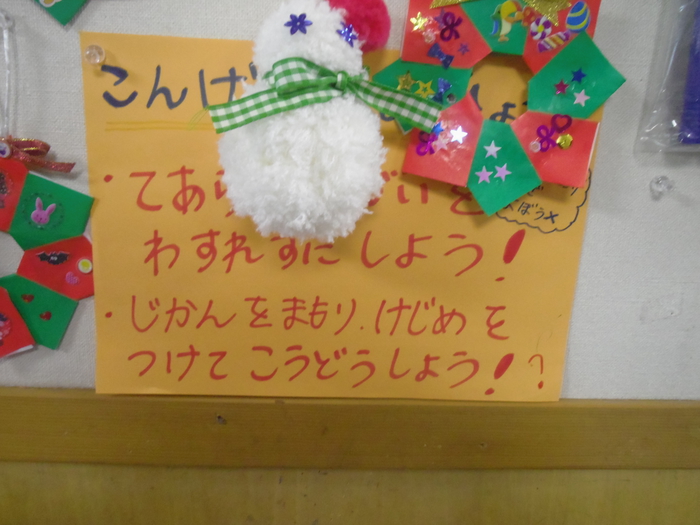 こんげ しょ
・てあら がいを
わすれずにしよう!
・じかんをまもり.けじめを
つけてこうどうしよう!?
ぼう